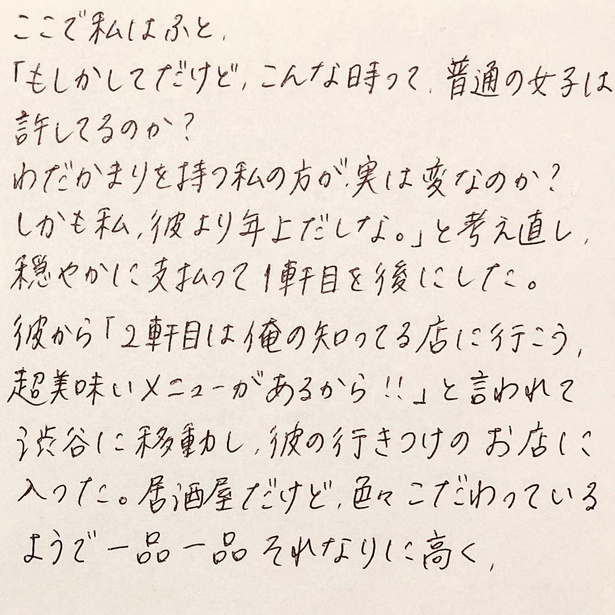 ここで私はふと、
「もしかしてだけど、こんな時って、普通の女子は
許してるのか？
わだかまりを持つ私の方が、実は変なのか？
しかも私、彼より年上だしな。」と考え直し、
穏やかに支払って1軒目を後にした。
彼から「2軒目は俺の知ってる店に行こう、
超美味いメニューがあるから!!」と言われて
渋谷に移動し、彼の行きつけのお店に
入った。居酒屋だけど、色々こだわっている
ようで一品一品それなりに高く、